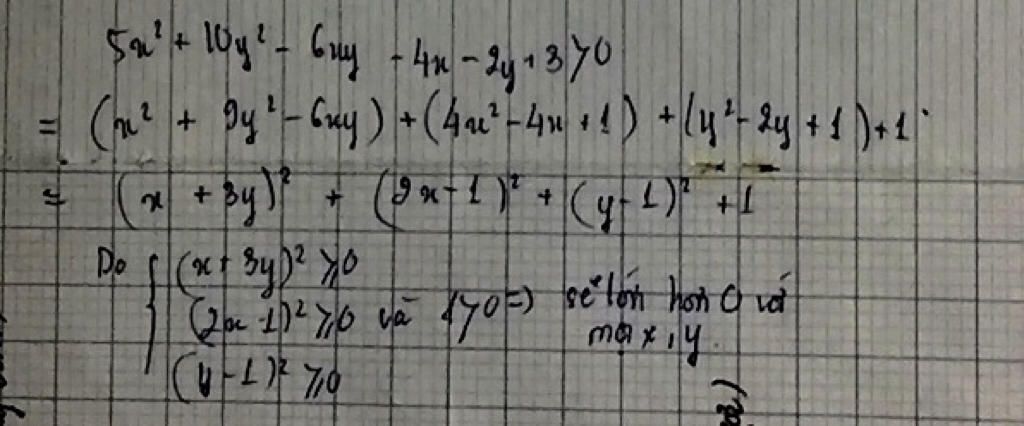 5x² + 10y² - 6xy - 4x - 2y + 3 > 0
= (x² + 9y² - 6xy) + (4x² - 4x + 1) + (y² - 2y + 1) + 1
= (x + 3y)² + (2x - 1)² + (y - 1)² + 1
Do { (x + 3y)² ≥ 0
(2x - 1)² ≥ 0 và 1 > 0 => sẽ lớn hơn 0 với
mọi x, y.
(y - 1)² ≥ 0